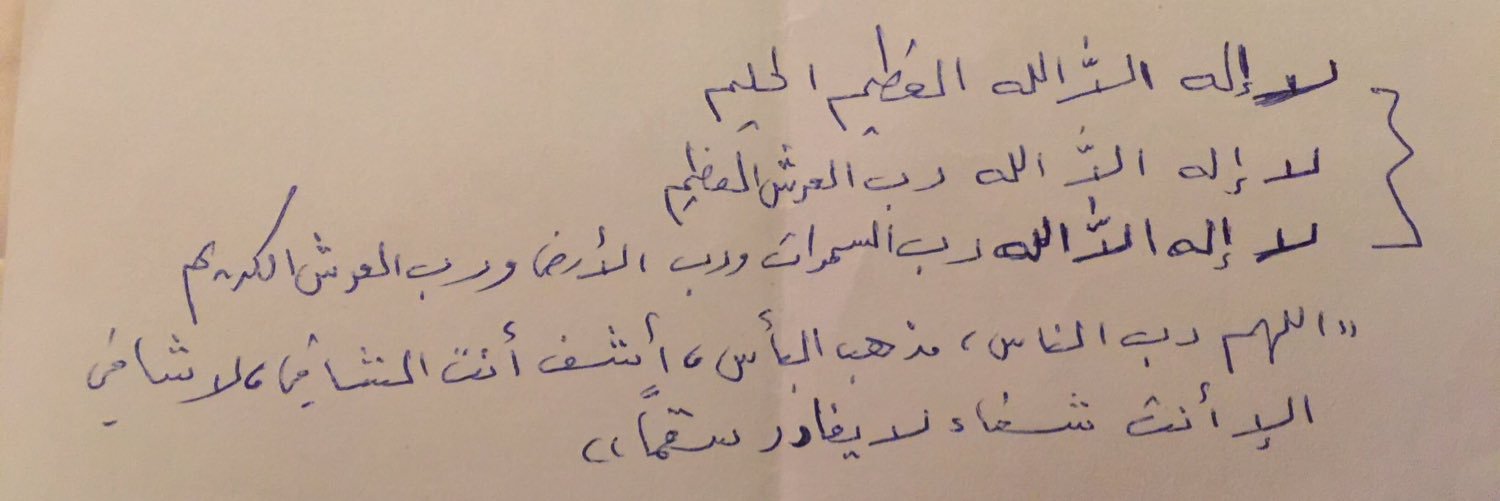 لا إله الاَّ الله العظيم الحليم
لا إله الاَّ الله رب العرش العظيم
لا إله الاَّ الله رب السموات ورب الأرض ورب العرش الكريم
"اللهم رب الناس، مذهب البأس، أشف أنت الشافي، لا شافي
الا أنت شفاء لا يغادر سقماً"